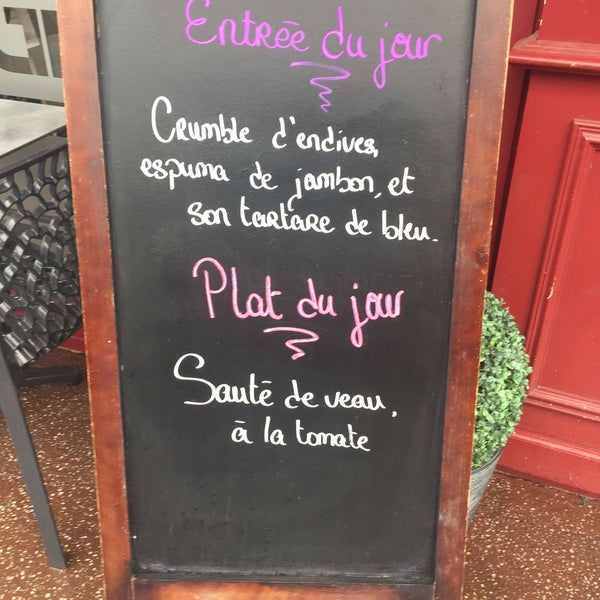 Entrée du jour
Crumble d'endives,
espuma de jambon, et
son tartare de bleu.
Plat du jour
Sauté de veau,
à la tomate